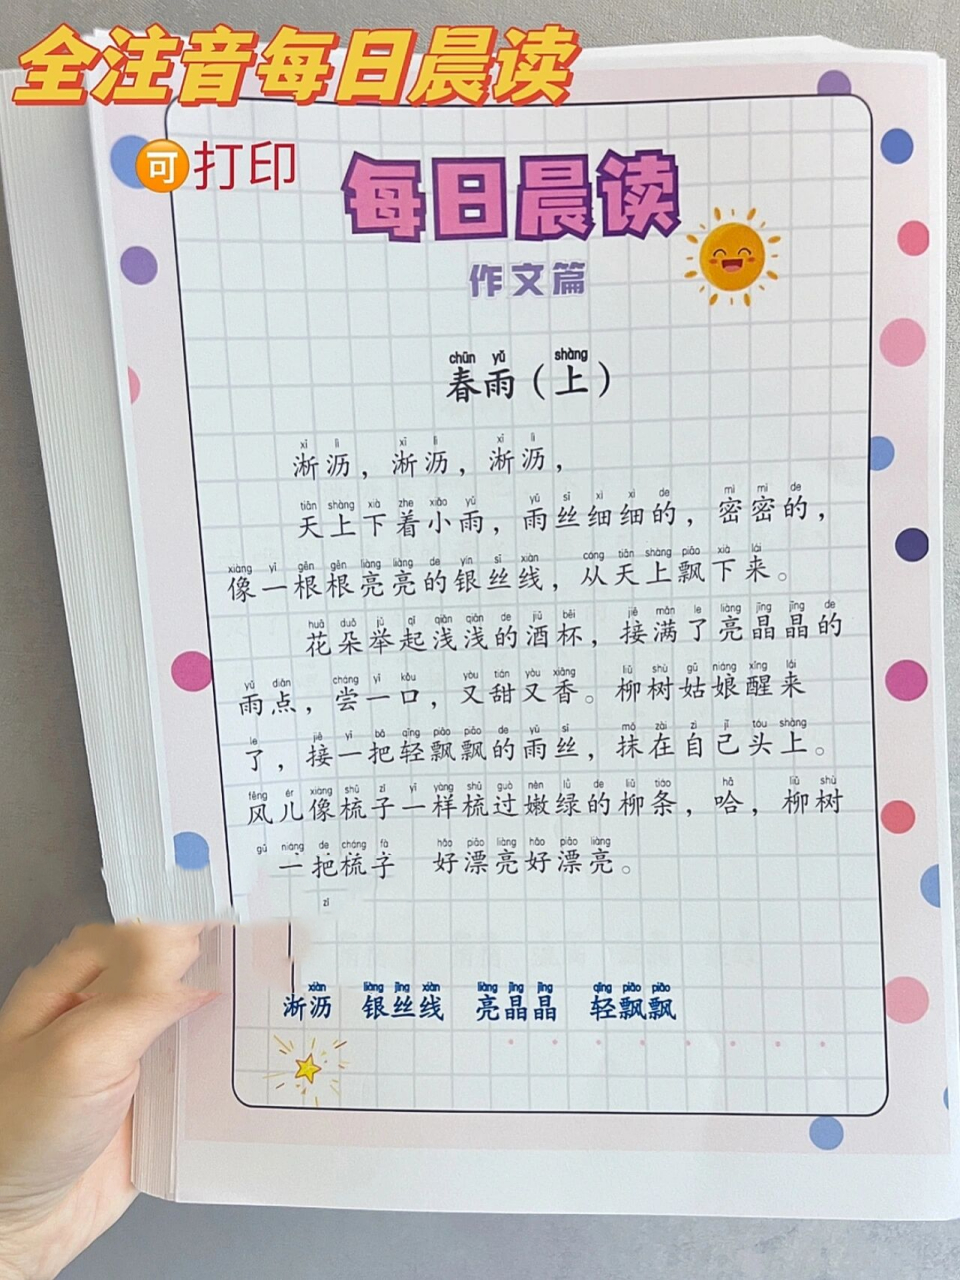 全注音每日晨读
🉑打印
每日晨读
作文篇
chūn yǔ shàng
春雨（上）
xī lì xī lì xī lì
淅沥，淅沥，淅沥，
tiān shàng xià zhe xiǎo yǔ yǔ sī xì xì de mì mì de
天上下着小雨，雨丝细细的，密密的，
xiàng yī gēn gēn liàng liàng de yín sī xiàn cóng tiān shàng piāo xià lái
像一根根亮亮的银丝线，从天上飘下来。
huā duǒ jǔ qǐ qiǎn qiǎn de jiǔ bēi jiē mǎn le liàng jīng jīng de
花朵举起浅浅的酒杯，接满了亮晶晶的
yǔ diǎn cháng yī kǒu yòu tián yòu xiāng liǔ shù gū niáng xǐng lái
雨点，尝一口，又甜又香。柳树姑娘醒来
le jiē yī bǎ qīng piāo piāo de yǔ sī mǒ zài zì jǐ tóu shàng
了，接一把轻飘飘的雨丝，抹在自己头上。
fēng ér xiàng shū zǐ yī yàng shū guò nèn lǜ de liǔ tiáo hā liǔ shù
风儿像梳子一样梳过嫩绿的柳条，哈，柳树
gū niáng de cháng fà hǎo piāo liàng hǎo piāo liàng
一把梳子 好漂亮好漂亮。
zǐ
xiàn liàng jīng xiàn liàng jīng jīng qīng piāo piāo
淅沥 银丝线 亮晶晶 轻飘飘